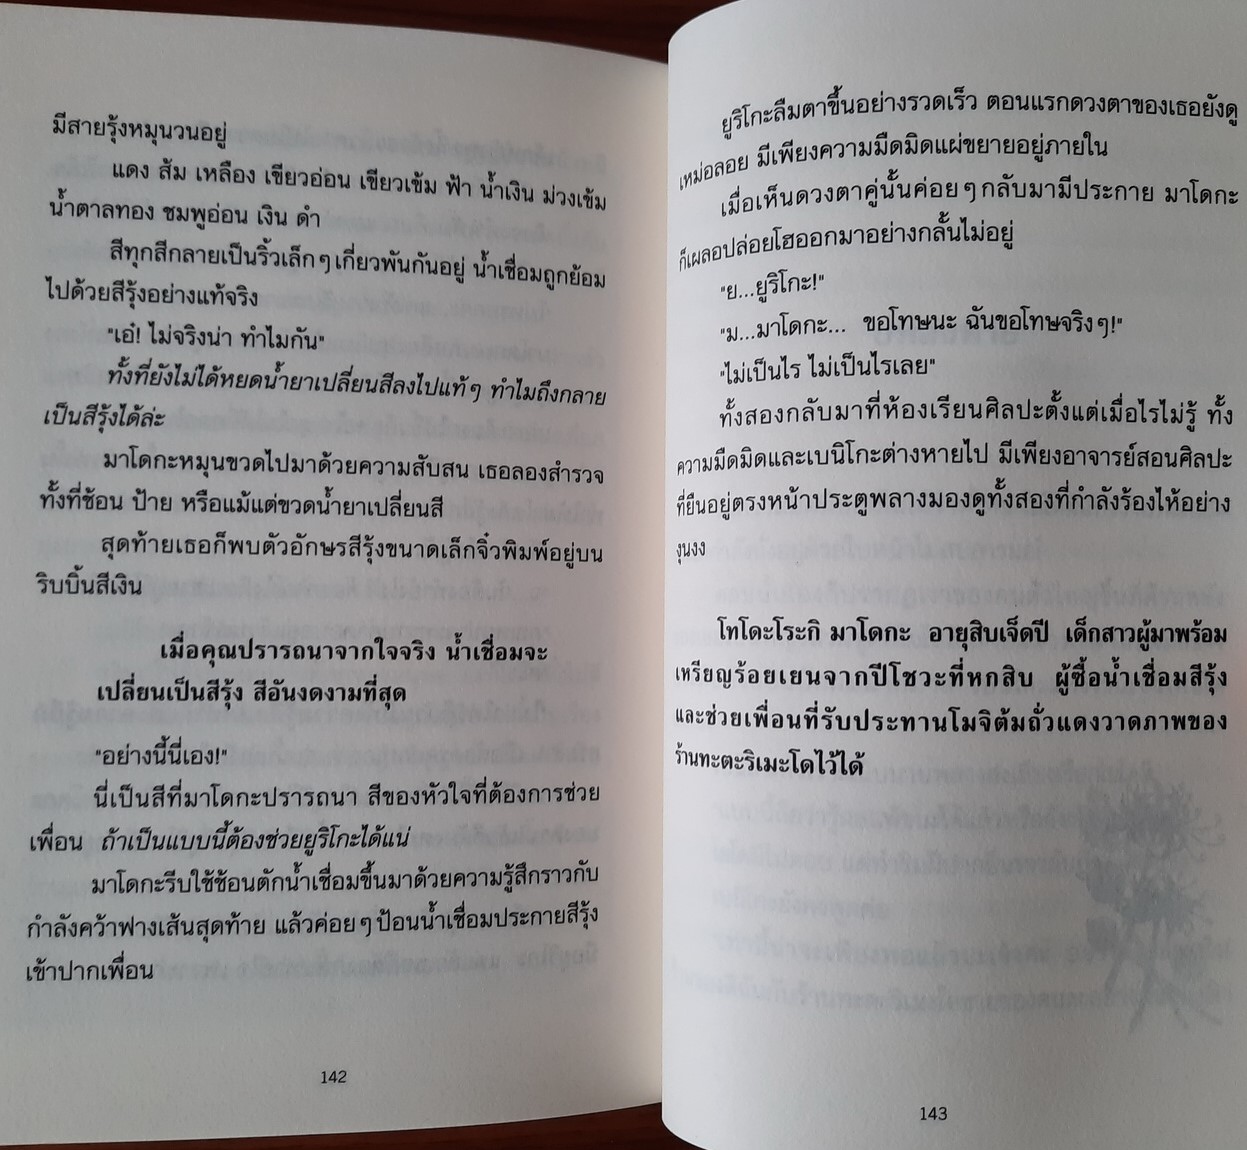 มีสายรุ้งหมุนวนอยู่
แดง ส้ม เหลือง เขียวอ่อน เขียวเข้ม ฟ้า น้ำเงิน ม่วงเข้ม
น้ำตาลทอง ชมพูอ่อน เงิน ดำ
สีทุกสีกลายเป็นริ้วเล็กๆ เกี่ยวพันกันอยู่ น้ำเชื่อมถูกย้อม
ไปด้วยสีรุ้งอย่างแท้จริง
"เอ๋! ไม่จริงน่า ทำไมกัน"
ทั้งที่ยังไม่ได้หยดน้ำยาเปลี่ยนสีลงไปแท้ๆ ทำไมถึงกลาย
เป็นสีรุ้งได้ล่ะ
มาโดกะหมุนขวดไปมาด้วยความสับสน เธอลองสำรวจ
ทั้งที่ช้อน ป้าย หรือแม้แต่ขวดน้ำยาเปลี่ยนสี
สุดท้ายเธอก็พบตัวอักษรสีรุ้งขนาดเล็กจิ๋วพิมพ์อยู่บน
ริบบิ้นสีเงิน
เมื่อคุณปรารถนาจากใจจริง น้ำเชื่อมจะ
เปลี่ยนเป็นสีรุ้ง สีอันงดงามที่สุด
"อย่างนี้นี่เอง!"
นี่เป็นสีที่มาโดกะปรารถนา สีของหัวใจที่ต้องการช่วย
เพื่อน ถ้าเป็นแบบนี้ต้องช่วยยูริโกะได้แน่
มาโดกะรีบใช้ช้อนตักน้ำเชื่อมขึ้นมาด้วยความรู้สึกราวกับ
กำลังคว้าฟางเส้นสุดท้าย แล้วค่อยๆ ป้อนน้ำเชื่อมประกายสีรุ้ง
เข้าปากเพื่อน
142
ยูริโกะลืมตาขึ้นอย่างรวดเร็ว ตอนแรกดวงตาของเธอยังดู
เหม่อลอย มีเพียงความมืดมิดแผ่ขยายอยู่ภายใน
เมื่อเห็นดวงตาคู่นั้นค่อยๆ กลับมามีประกาย มาโดกะ
ก็เผลอปล่อยโฮออกมาอย่างกลั้นไม่อยู่
"ย...ยูริโกะ!"
"ม...มาโดกะ... ขอโทษนะ ฉันขอโทษจริงๆ!"
"ไม่เป็นไร ไม่เป็นไรเลย"
ทั้งสองกลับมาที่ห้องเรียนศิลปะตั้งแต่เมื่อไรไม่รู้ ทั้ง
ความมืดมิดและเบนิโกะต่างหายไป มีเพียงอาจารย์สอนศิลปะ
ที่ยืนอยู่ตรงหน้าประตูพลางมองดูทั้งสองที่กำลังร้องไห้อย่าง
งุนงง
โทโดะโระกิ มาโดกะ อายุสิบเจ็ดปี เด็กสาวผู้มาพร้อม
เหรียญร้อยเยนจากปีโชวะที่หกสิบ ผู้ซื้อน้ำเชื่อมสีรุ้ง
และช่วยเพื่อนที่รับประทานโมจิต้มถั่วแดงวาดภาพของ
ร้านทะตะริเมะโดไว้ได้
143